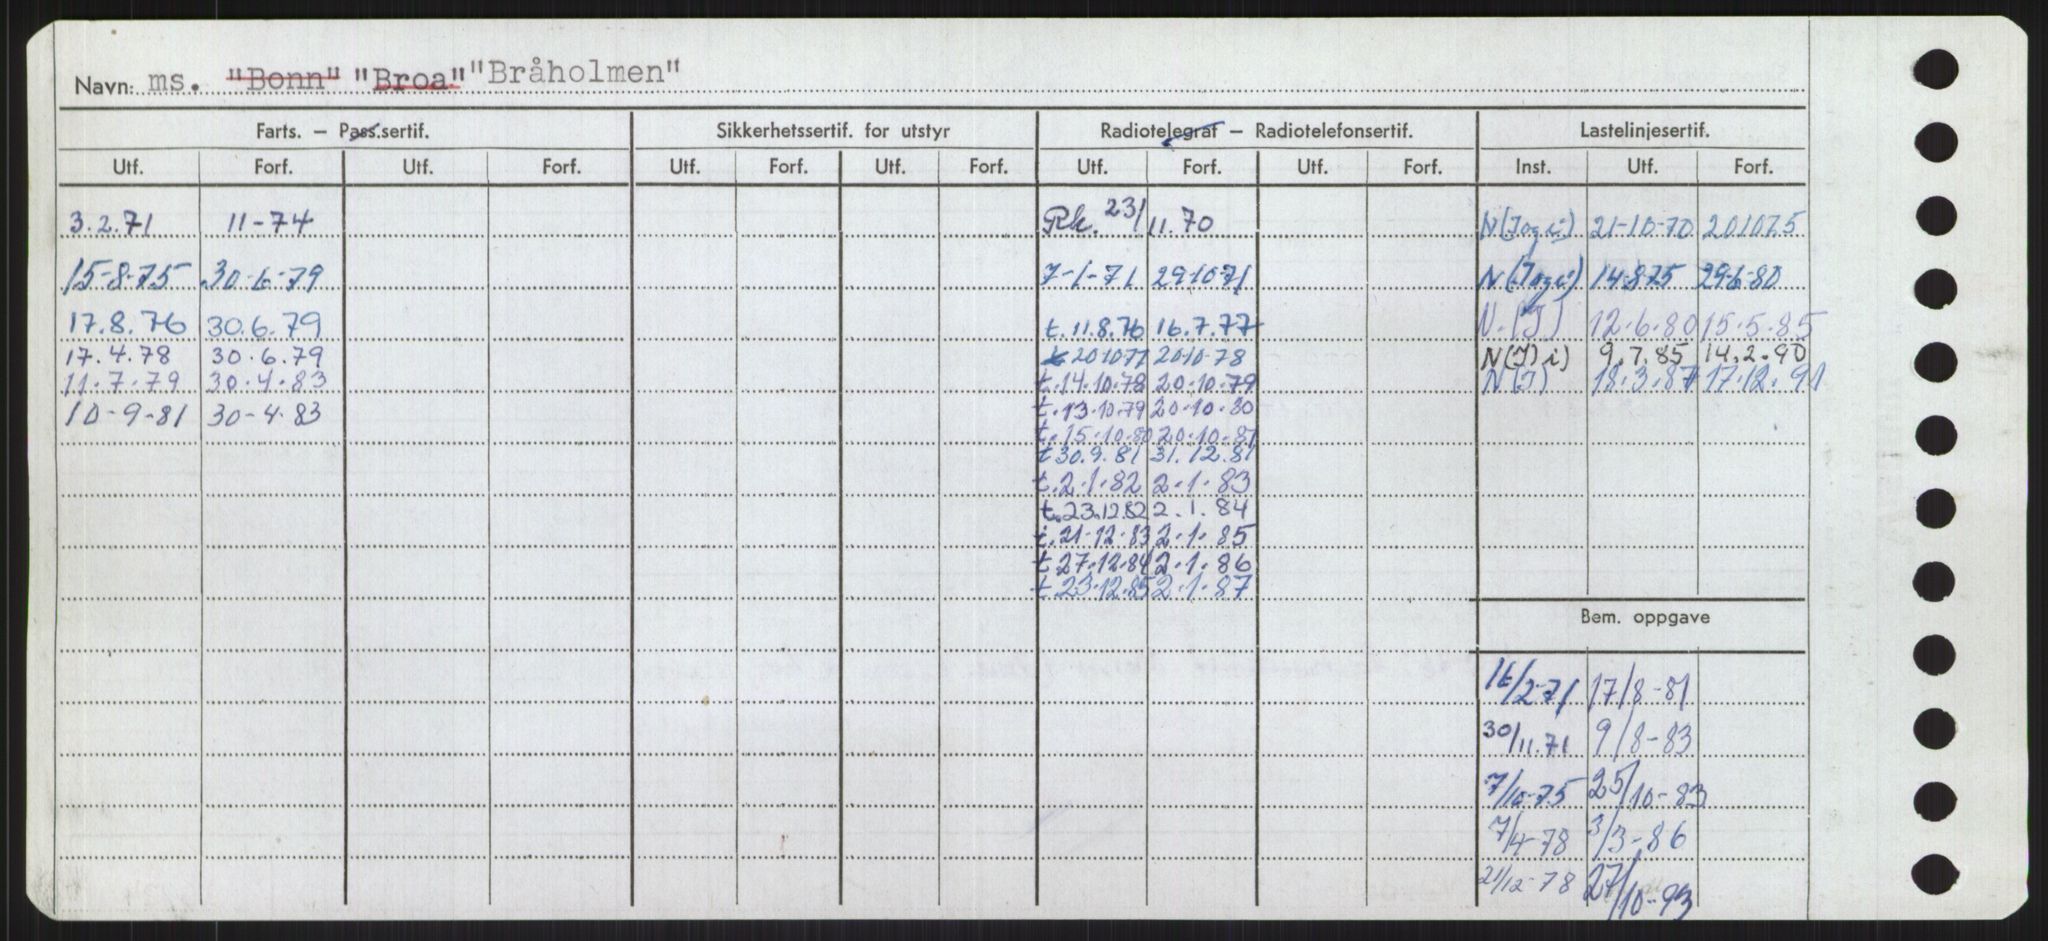 Navn: ms. "Bonn" "Broa" "Bråholmen"
Farts. – Pass.sertif. Sikkerhetssertif. for utstyr Radiotelegraf – Radiotelefonsertif. Lastelinjesertif.
Utf. Forf. Utf. Forf. Utf. Forf. Utf. Forf. Utf. Forf. Utf. Forf. Inst. Utf. Forf.
3.2.71 11-74 Rk. 23/11.70 N(J og i) 21-10-70 201075
15-8-75 30-6-79 7-1-71 29-10-71 N(J og i) 14-8-75 29-6-80
17.8.76 30.6.79 t. 11.8.76 16.7.77 N.(J) 12.6.80 15.5.85
17.4.78 30.6.79 t 20-10-77 20-10-78 N(J)i) 9.7.85 14.2.90
11.7.79 30.4.83 t. 14.10.78 20.10.79 N(J) 18.3.87 17.12.91
10-9-81 30-4-83 t. 13.10.79 20.10.80
t. 15.10.80 20.10.81
t 30.9.81 31.12.81
t. 2.1.82 2.1.83
t. 23.12.82 2.1.84
t. 21-12-83 2.1.85
t. 27.12.84 2.1.86
t. 23.12.85 2.1.87
Bem. oppgave
16/2-71 17/8-81
30/11.71 9/8-83
7/10-75 25/10-83
7/4-78 3/3-86
21/12-78 27/10-93